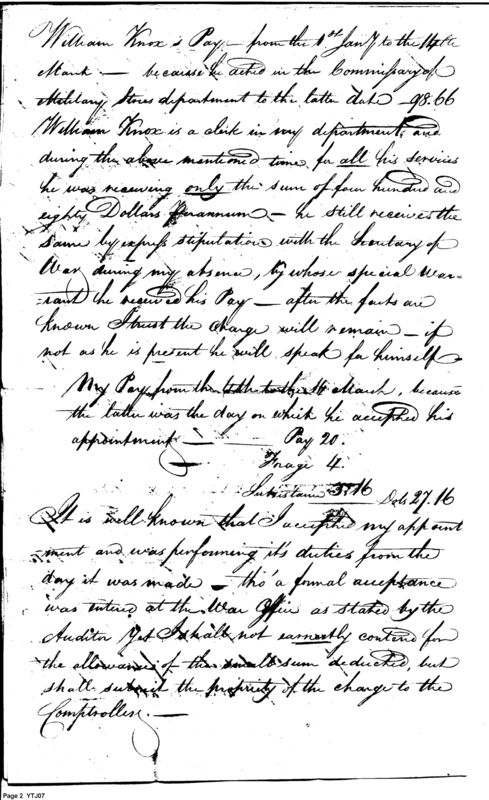 William Knox's Pay — from the 1st Jany to the 14th
March — because he acted in the Commissary of
Military Stores department to the latter date — 98.66
William Knox is a clerk in my department, and
during the above mentioned time, for all his services
he was receiving only the sum of four hundred and
eighty Dollars Perannum — he still receives the
same by express stipulation with the Secretary of
War during my absence, by whose special War-
-rant he received his Pay — after the facts are
known I trust the charge will remain — if
not as he is present he will speak for himself
My Pay from the to the March, because
the latter was the day on which he accepted his
appointment — Pay 20.
— Forage 4.
Subsistance 3.16 Dols 27.16
It is well known that I accepted my appoint
ment and was performing it's duties from the
day it was made — tho' a formal acceptance
was entered at the War Office as stated by the
Auditor Yet I shall not earnestly contend for
the allowance of the small sum deducted, but
shall submit the propriety of the charge to the
Comptroller. —
Page 2 YTJ07